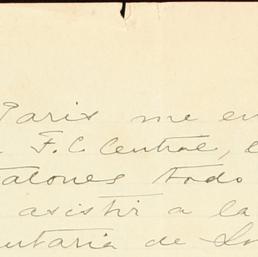 Paris me en
F. C. Central,
talones todo
asistir a la
utaria de